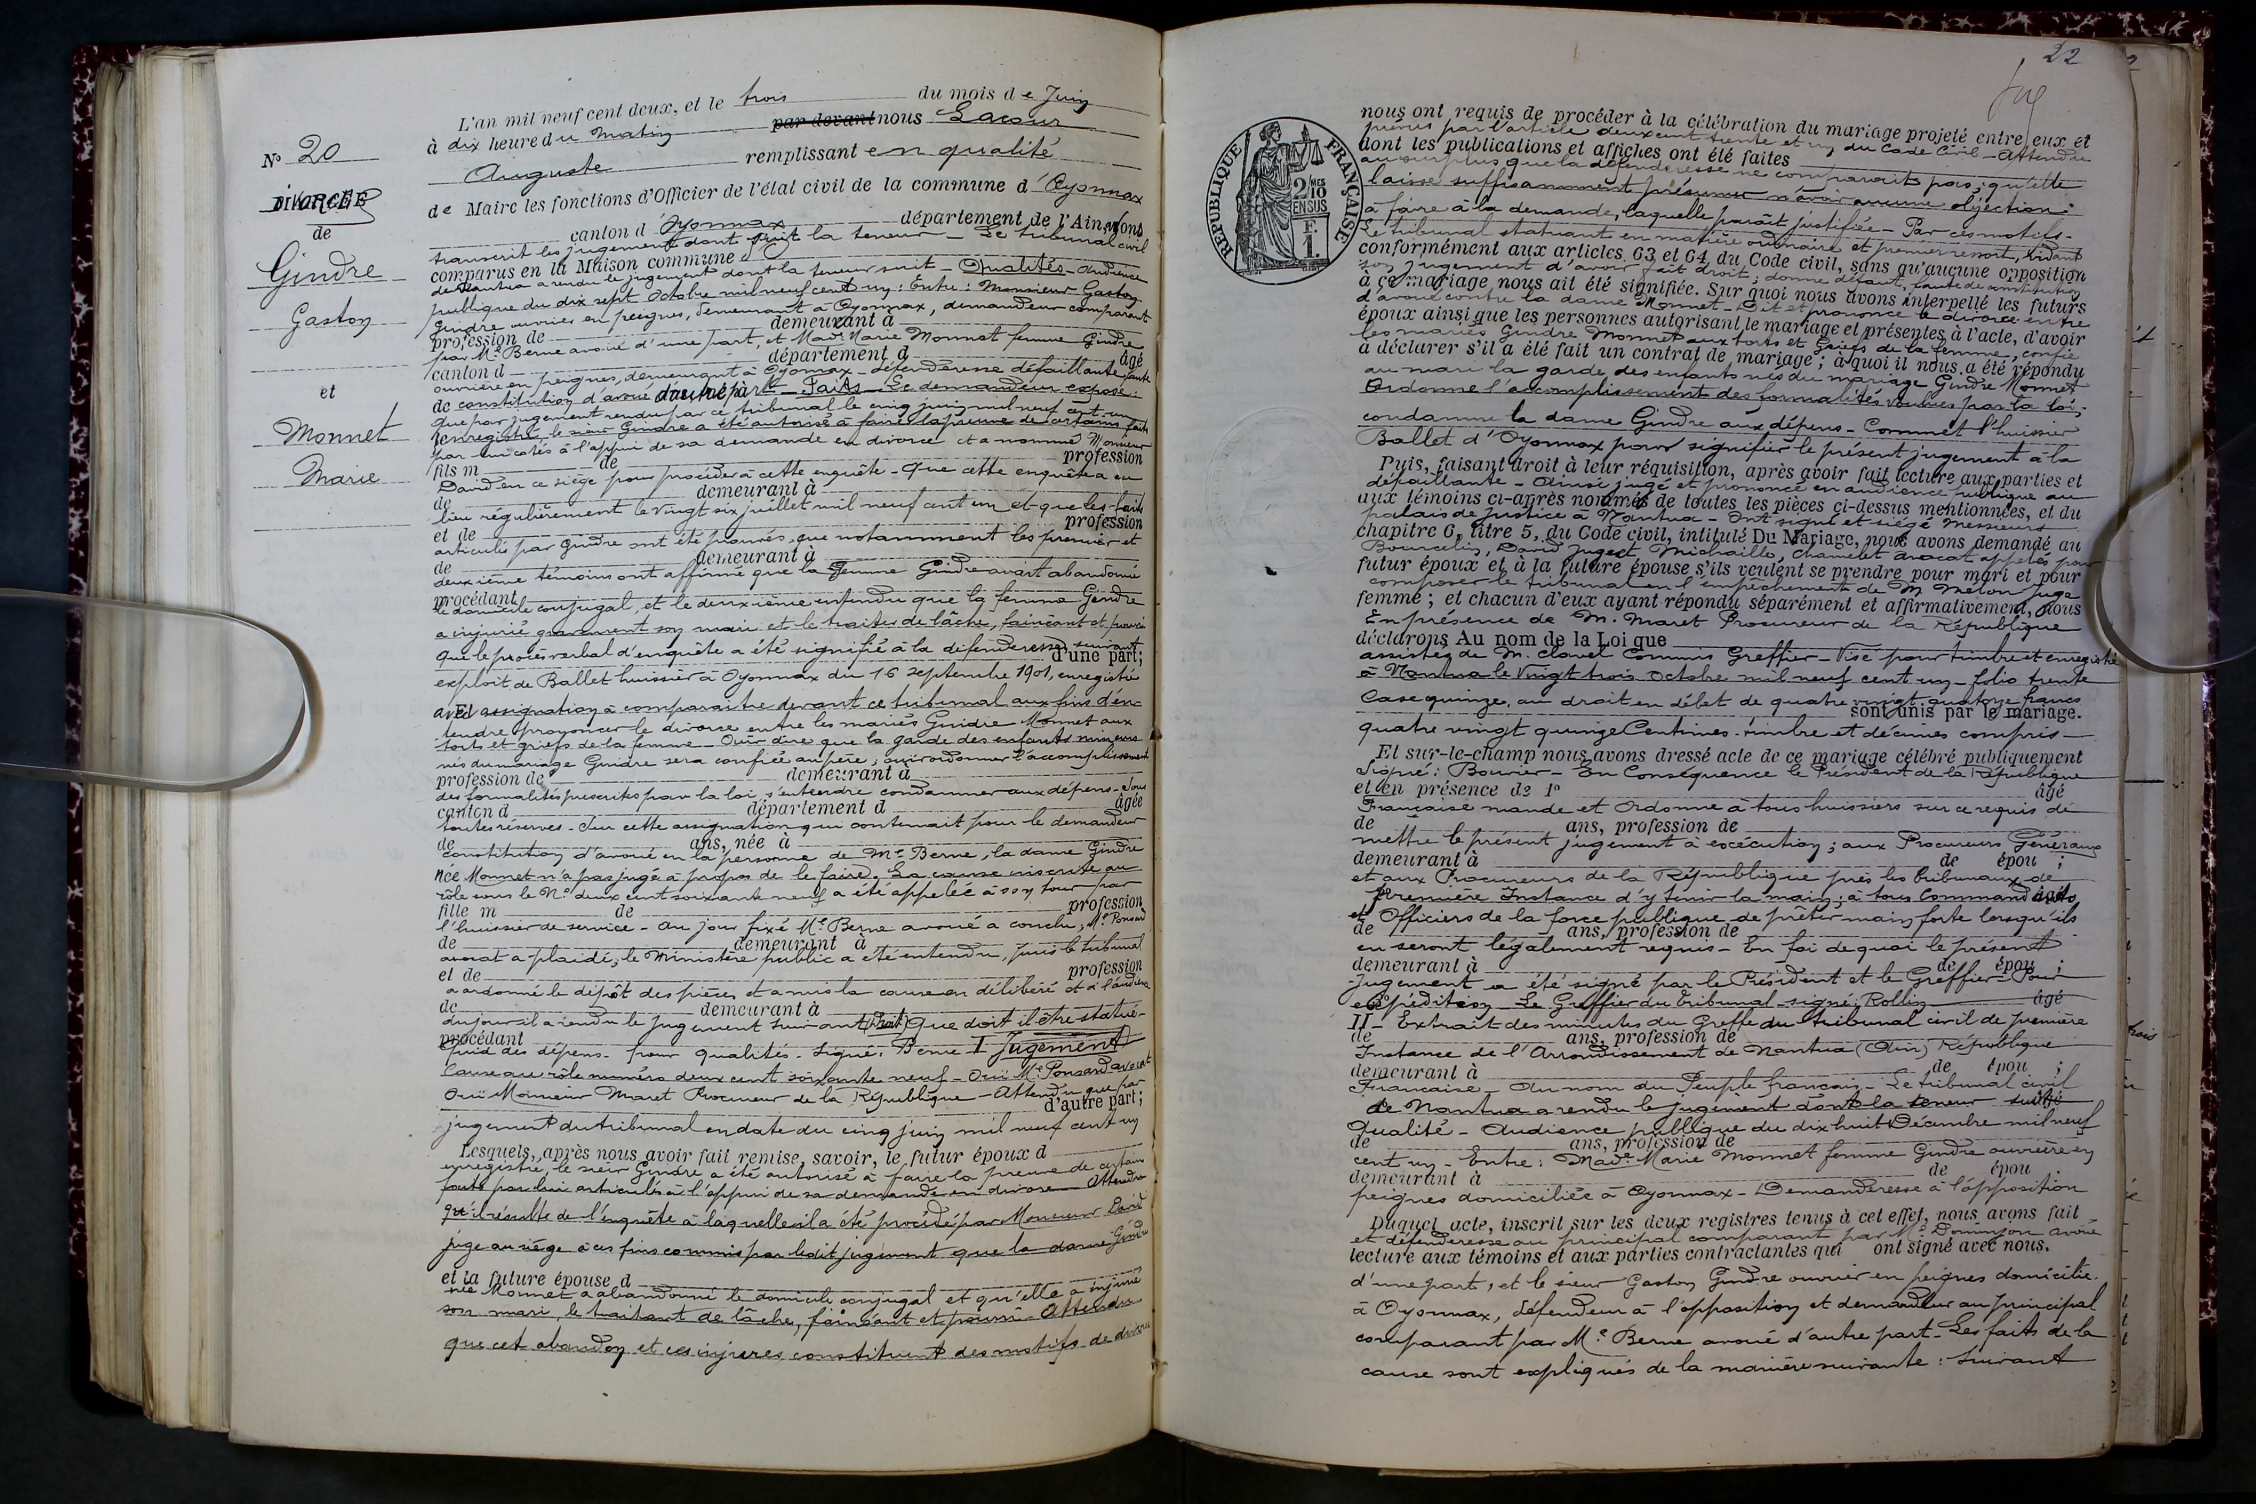 L'an mil neuf cent deux, et le trois du mois de Juin
à dix heure du Matin par devant nous Lacour
Nº 20
Auguste remplissant en qualité
DIVORCE
de Maire les fonctions d'Officier de l'état civil de la commune d'Oyonnax
de
canton d'Oyonnax département de l'Ain, avons
transcrit les jugements dont suit la teneur - Le tribunal civil
Gindre
comparus en la Maison commune
de Nantua a rendu le jugement dont la teneur suit - Qualités - Audience
publique du dix sept Octobre mil neuf cent un : Entre : Monsieur Gaston
Gaston
Gindre ouvrier en peignes, demeurant à Oyonnax, demandeur comparant
profession de demeurant à
par Me Berne avoué d'une part, et Made Marie Monnet femme Gindre
canton d département d âgé
ouvrière en peignes, demeurant à Oyonnax - défenderesse défaillante faute
et
de constitution d'avoué d'autre part - Faits - Le demandeur expose :
que par jugement rendu par ce tribunal le cinq juin mil neuf cent un
Monnet
enregistré, le sieur Gindre a été autorisé à faire la preuve de certains faits
par lui cotés à l'appui de sa demande en divorce et a nommé Monsieur
fils m de profession
Marie
David en ce siège pour procéder à cette enquête - Que cette enquête a eu
de demeurant à
lieu régulièrement le vingt six juillet mil neuf cent un et que les faits
et de profession
articulés par Gindre ont été prouvés, que notamment les premier et
de demeurant à
deuxième témoins ont affirmé que la femme Gindre avait abandonné
procédant
le domicile conjugal, et le deuxième entendu que la femme Gindre
a injurié gravement son mari et le traiter de lâche, fainéant et pourri
Que le procès verbal d'enquête a été signifié à la défenderesse suivant
d'une part;
exploit de Ballet huissier à Oyonnax du 16 septembre 1901, enregistré
Et
avec assignation à comparaître devant ce tribunal aux fins d'en-
tendre prononcer le divorce entre les mariés Gindre Monnet aux
torts et griefs de la femme - Ouïr dire que la garde des enfants mineurs
nés du mariage Gindre sera confiée au père; ouïr ordonner l'accomplissement
profession de demeurant à
des formalités prescrites par la loi, s'entendre condamner aux dépens - Sous
canton d département d âgée
toutes réserves - Sur cette assignation qui contenait pour le demandeur
de ans, née à
constitution d'avoué en la personne de Me Berne, la dame Gindre
née Monnet n'a pas jugé à propos de le faire. La cause inscrite au
rôle sous le No deux cent soixante neuf a été appelée à son tour par
fille m de profession
l'huissier de service - Au jour fixé Me Berne avoué a conclu, Me Ponsard
de demeurant à
avocat a plaidé, le Ministère public a été entendu, puis le tribunal
et de profession
a ordonné le dépôt des pièces et a mis la cause en délibéré et à l'audience
de demeurant à
du jour il a rendu le jugement suivant (Droit) Que doit il être statué -
procédant
Quid des dépens - Pour qualités - Signé : Berne I Jugement
Cause au rôle numéro deux cent soixante neuf - Ouï Me Ponsard avocat
Ouï Monsieur Maret Procureur de la République - Attendu que par
d'autre part;
jugement du tribunal en date du cinq juin mil neuf cent un
Lesquels, après nous avoir fait remise, savoir, le futur époux d
enregistré, le sieur Gindre a été autorisé à faire la preuve de certains
faits par lui articulés à l'appui de sa demande en divorce - Attendu
qu'il résulte de l'enquête à laquelle il a été procédé par Monsieur David
juge au siège à ces fins commis par ledit jugement que la dame Gindre
et la future épouse d
née Monnet a abandonné le domicile conjugal et qu'elle a injurié
son mari, le traitant de lâche, fainéant et pourri - Attendu
que cet abandon et ces injures constituent des motifs de divorce
22
RÉPUBLIQUE FRANÇAISE
2/10 MES EN SUS
F. 1.
nous ont requis de procéder à la célébration du mariage projeté entre eux et
prévus par l'article deux cent trente et un du Code Civil - Attendu
dont les publications et affiches ont été faites
au surplus que la défenderesse ne comparait pas; qu'elle
laisse suffisamment présumer n'avoir aucune objection
à faire à la demande, laquelle paraît justifiée - Par ces motifs -
Le tribunal statuant en matière ordinaire et premier ressort, vidant
conformément aux articles 63 et 64 du Code civil, sans qu'aucune opposition
son jugement d'avoir fait droit; donne défaut, faute de constitution
à ce mariage nous ait été signifiée. Sur quoi nous avons interpellé les futurs
d'avoué contre la dame Monnet - Dit et prononce le divorce entre
époux ainsi que les personnes autorisant le mariage et présentes à l'acte, d'avoir
les mariés Gindre Monnet aux torts et griefs de la femme, confie
à déclarer s'il a été fait un contrat de mariage; à quoi il nous a été répondu
au mari la garde des enfants nés du mariage Gindre Monnet
Ordonne l'accomplissement des formalités voulues par la loi;
condamne la dame Gindre aux dépens - Commet l'huissier
Ballet d'Oyonnax pour signifier le présent jugement à la
Puis, faisant droit à leur réquisition, après avoir fait lecture aux parties et
défaillante - Ainsi jugé et prononcé en audience publique au
aux témoins ci-après nommés de toutes les pièces ci-dessus mentionnées, et du
palais de justice à Nantua - Ont signé et siégé Messieurs
chapitre 6, titre 5, du Code civil, intitulé Du Mariage, nous avons demandé au
David Juge et Michaille, avocat appelés pour
futur époux et à la future épouse s'ils veulent se prendre pour mari et pour
composer le tribunal en l'empêchement de M. juge
femme; et chacun d'eux ayant répondu séparément et affirmativement, nous
En présence de M. Maret Procureur de la République
déclarons Au nom de la Loi que
assistés de M. Clavel Commis Greffier - Visé pour timbre et enregistré
à Nantua le Vingt trois Octobre mil neuf cent un - folio trente
Case quinze, au droit en débet de quatre vingt quatorze francs
sont unis par le mariage.
quatre vingt quinze Centimes - timbre et décimes compris -
Et sur-le-champ nous avons dressé acte de ce mariage célébré publiquement
Signé : - En Conséquence le Président de la République
et en présence de 1º âgé
Française mande et Ordonne à tous huissiers sur ce requis de
de ans, profession de
mettre le présent jugement à exécution; aux Procureurs Généraux
demeurant à de épou ;
et aux Procureurs de la République près les tribunaux de
première Instance d'y tenir la main; à tous Commandants
et Officiers de la force publique de prêter main forte lorsqu'ils
de ans, profession de
en seront légalement requis - En foi de quoi le présent
demeurant à de épou ;
jugement a été signé par le Président et le Greffier - Pour
expédition - Le Greffier du tribunal signé, Rollin âgé
II - Extrait des minutes du Greffe du tribunal civil de première
de ans, profession de
Instance de l'Arrondissement de Nantua (Ain) République
demeurant à de épou ;
Française - Au nom du Peuple français - Le tribunal civil
de Nantua a rendu le jugement dont la teneur suit :
Qualité - Audience publique du dix huit Décembre mil neuf
de ans, profession de
cent un - Entre : Made Marie Monnet femme Gindre ouvrière en
demeurant à de épou
peignes domiciliée à Oyonnax - Demanderesse à l'opposition
Duquel acte, inscrit sur les deux registres tenus à cet effet, nous avons fait
et défenderesse au principal comparant par Me Dominjon avoué
lecture aux témoins et aux parties contractantes qui ont signé avec nous.
d'une part, et le sieur Gaston Gindre ouvrier en peignes domicilié
à Oyonnax, défendeur à l'opposition et demandeur au principal
comparant par Me Berne avoué d'autre part - Les faits de la
cause sont expliqués de la manière suivante : Suivant